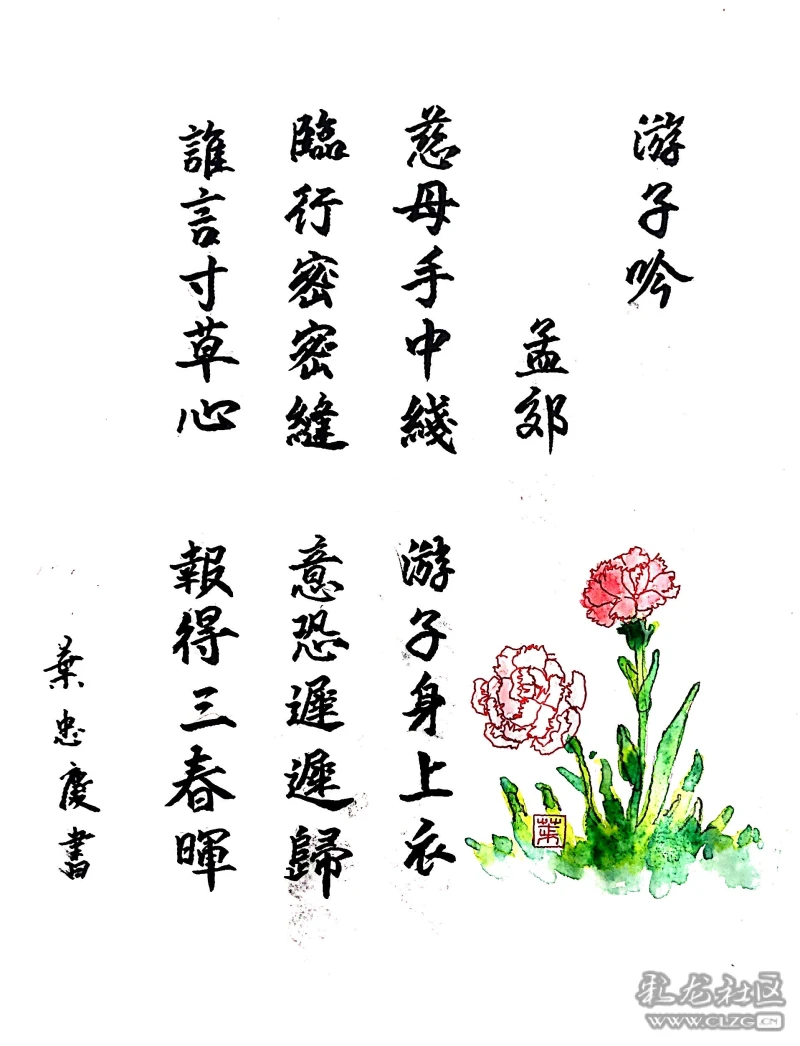 游子吟
孟郊
慈母手中綫
游子身上衣
臨行密密縫
意恐遲遲歸
誰言寸草心
報得三春暉
葉忠慶書
葉
彩龙社区
WWW.CLZG.CN